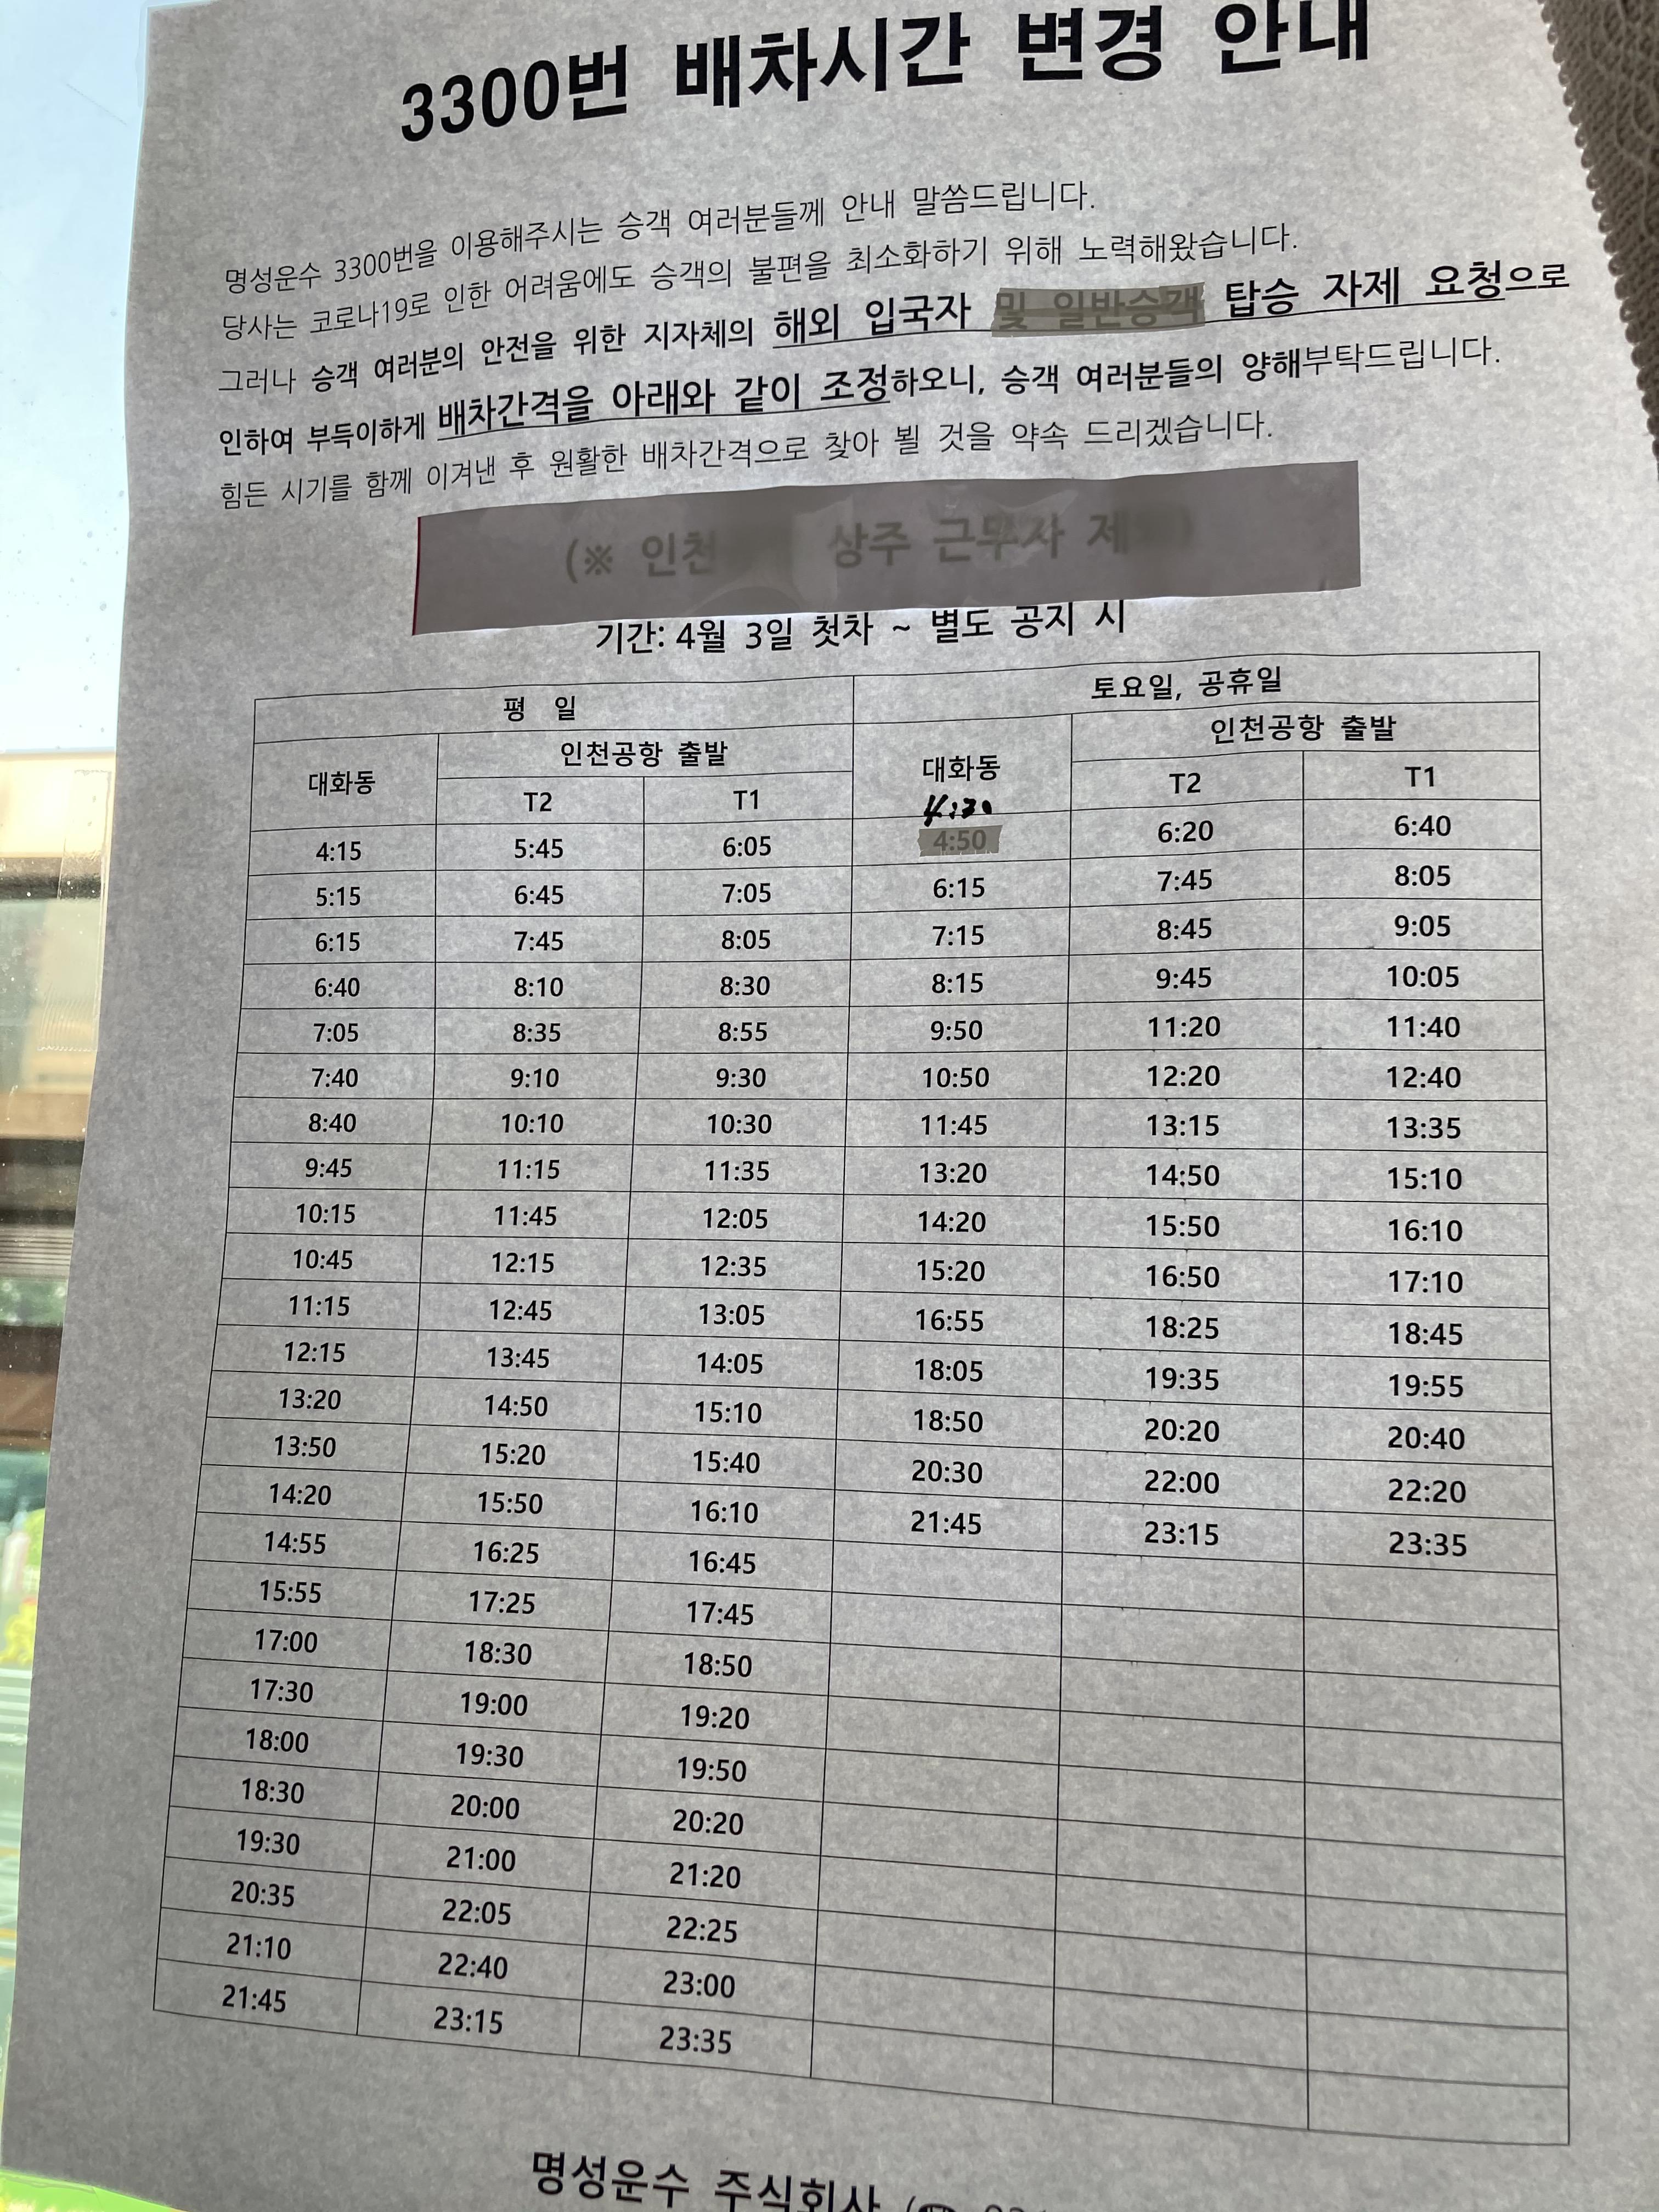 3300번 배차시간 변경 안내
명성운수 3300번을 이용해주시는 승객 여러분들께 안내 말씀드립니다.
당사는 코로나19로 인한 어려움에도 승객의 불편을 최소화하기 위해 노력해왔습니다.
그러나 승객 여러분의 안전을 위한 지자체의 해외 입국자 및 일반승객 탑승 자제 요청으로
인하여 부득이하게 배차간격을 아래와 같이 조정하오니, 승객 여러분들의 양해부탁드립니다.
힘든 시기를 함께 이겨낸 후 원활한 배차간격으로 찾아 뵐 것을 약속 드리겠습니다.
(※ 인천 상주 근무자 제
기간: 4월 3일 첫차 ~ 별도 공지 시
평 일 토요일, 공휴일
대화동 인천공항 출발 대화동 인천공항 출발
T2 T1 4:30 T2 T1
4:15 5:45 6:05 4:50 6:20 6:40
5:15 6:45 7:05 6:15 7:45 8:05
6:15 7:45 8:05 7:15 8:45 9:05
6:40 8:10 8:30 8:15 9:45 10:05
7:05 8:35 8:55 9:50 11:20 11:40
7:40 9:10 9:30 10:50 12:20 12:40
8:40 10:10 10:30 11:45 13:15 13:35
9:45 11:15 11:35 13:20 14:50 15:10
10:15 11:45 12:05 14:20 15:50 16:10
10:45 12:15 12:35 15:20 16:50 17:10
11:15 12:45 13:05 16:55 18:25 18:45
12:15 13:45 14:05 18:05 19:35 19:55
13:20 14:50 15:10 18:50 20:20 20:40
13:50 15:20 15:40 20:30 22:00 22:20
14:20 15:50 16:10 21:45 23:15 23:35
14:55 16:25 16:45
15:55 17:25 17:45
17:00 18:30 18:50
17:30 19:00 19:20
18:00 19:30 19:50
18:30 20:00 20:20
19:30 21:00 21:20
20:35 22:05 22:25
21:10 22:40 23:00
21:45 23:15 23:35
명성운수 주식회사